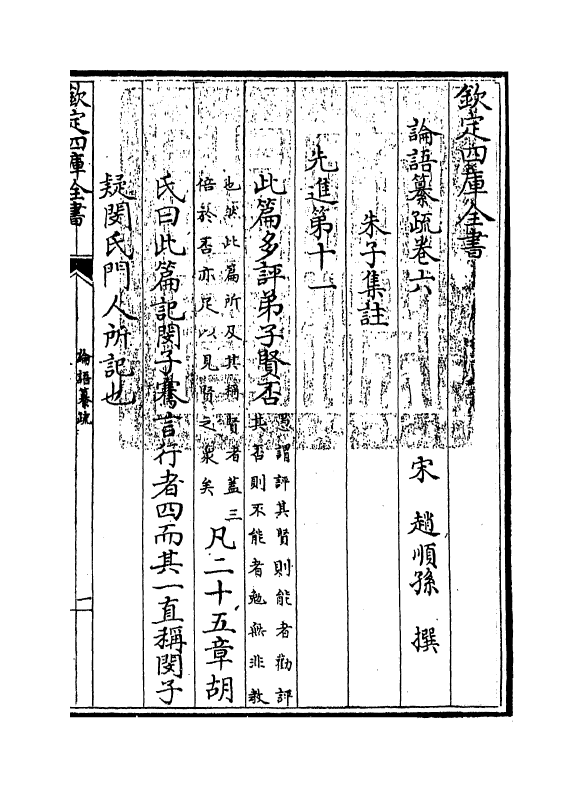 欽定四庫全書
論語纂疏卷六 宋 趙順孫 撰
朱子集註
先進第十一
此篇多評弟子賢否 愚謂評其賢則能者勸評
其否則不能者勉無非教
也然此篇所及其稱賢者蓋三
倍於否亦足以見賢之衆矣 凡二十五章胡
氏曰此篇記閔子騫言行者四而其一直稱閔子
疑閔氏門人所記也
欽定四庫全書 論語纂疏 一